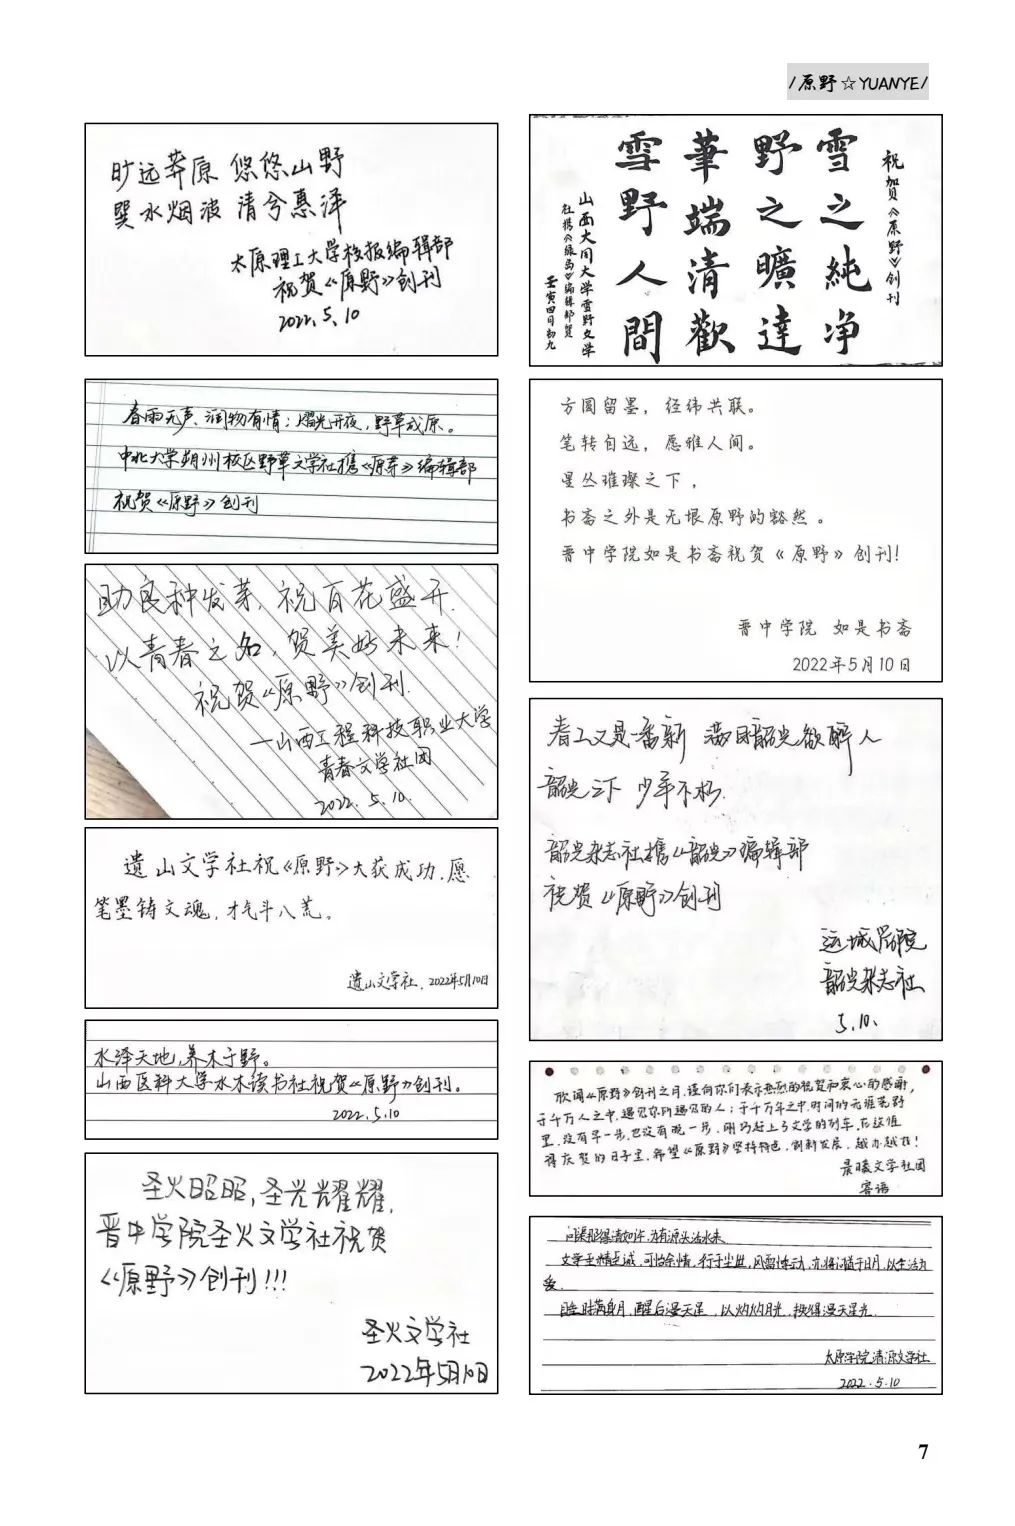 /原野☆YUANYE/
旷远莽原 悠悠山野
巽水烟波 清兮惠泽
太原理工大学校报编辑部
祝贺《原野》创刊
2022.5.10
春雨无声、润物有情；熠光开夜，野草成原。
中北大学朔州校区野草文学社携《原荠》编辑部
祝贺《原野》创刊
助良种发芽，祝百花盛开.
以青春之名，贺美好未来！
祝贺《原野》创刊.
—山西工程科技职业大学
青春文学社团
2022.5.10.
遗山文学社祝《原野》大获成功，愿
笔墨铸文魂，才气斗八荒。
遗山文学社，2022年5月10日
水泽天地，养木于野。
山西医科大学水木读书社祝贺《原野》创刊。
2022.5.10
圣火昭昭，圣光耀耀，
晋中学院圣火文学社祝贺
《原野》创刊!!!
圣火文学社
2022年5月10日
祝贺《原野》创刊
雪之純净
野之曠達
華端清歡
雪野人間
山西大同大学雪野文学
社携《绿岛》编辑部贺
壬寅四月初九
方圆留墨，经纬共联。
笔转自远，愿雅人间。
星丛璀璨之下，
书斋之外是无垠原野的豁然。
晋中学院如是书斋祝贺《原野》创刊！
晋中学院 如是书斋
2022年5月10日
春工又是一番新 满目韶光欲醉人
韶光之下 少年不朽.
韶光杂志社携《韶光》编辑部
祝贺《原野》创刊
运城学院
韶光杂志社
5.10.
欣闻《原野》创刊之月，谨向你们表示热烈的祝贺和衷心的感谢，
于千万人之中，遇见你所遇见的人；于千万年之中，时间的无涯荒野
里，没有早一步，也没有晚一步，刚巧赶上了文学的列车，在这值
得庆贺的日子里，希望《原野》坚持特色，创新发展，越办越好！
晨曦文学社团
寄语
问渠那得清如许，为有源头活水来
文学至精至诚，可怡余情，行于尘世，风雷怦动，亦将心猛于日月，以生活为
爱。
时满身月，醒后漫天星，以灼灼月光，换得漫天星光.
太原学院清源文学社
2022.5.10
7